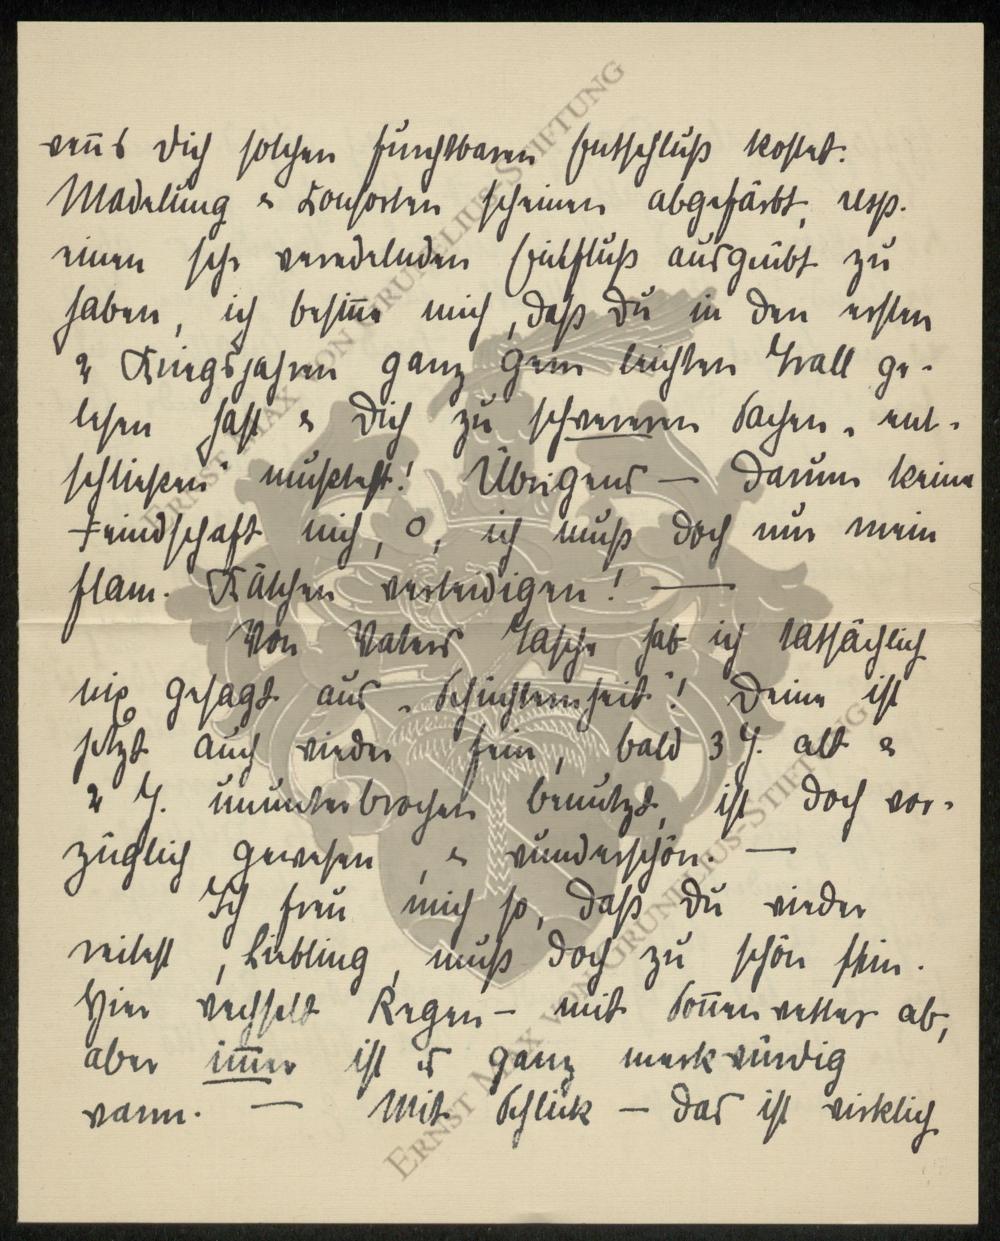 wenn's Dich solchen furchtbaren Entschluß kostet.
Madelung & Konsorten scheinen abgefärbt, resp.
einen sehr veredelnden Einfluß ausgeübt zu
haben, ich besinne mich, daß Du in den ersten
2 Kriegsjahren ganz gern leichten Krall ge-
lesen hast & Dich zu schwereren Sachen „ent-
schließen“ mußtest! Übrigens — darum keine
Feindschaft nich, o, ich muß doch nur mein
flam. Kätchen verteidigen! —
Von Vaters Tasche hab ich tatsächlich
nix gesagt aus „Schüchternheit“! Deine ist
jetzt auch wieder fein, bald 3 J. alt &
2 J. ununterbrochen benutzt, ist doch vor-
züglich gewesen, & wunderschön. —
Ich freu mich so, daß Du wieder
reitest, Liebling, muß doch zu schön sein.
Hier wechselt Regen- mit Sonnenwetter ab,
aber immer ist es ganz merkwürdig
warm. — Mit Schlück — das ist wirklich
ERNST MAX VON GRUNELIUS-STIFTUNG
ERNST MAX VON GRUNELIUS-STIFTUNG